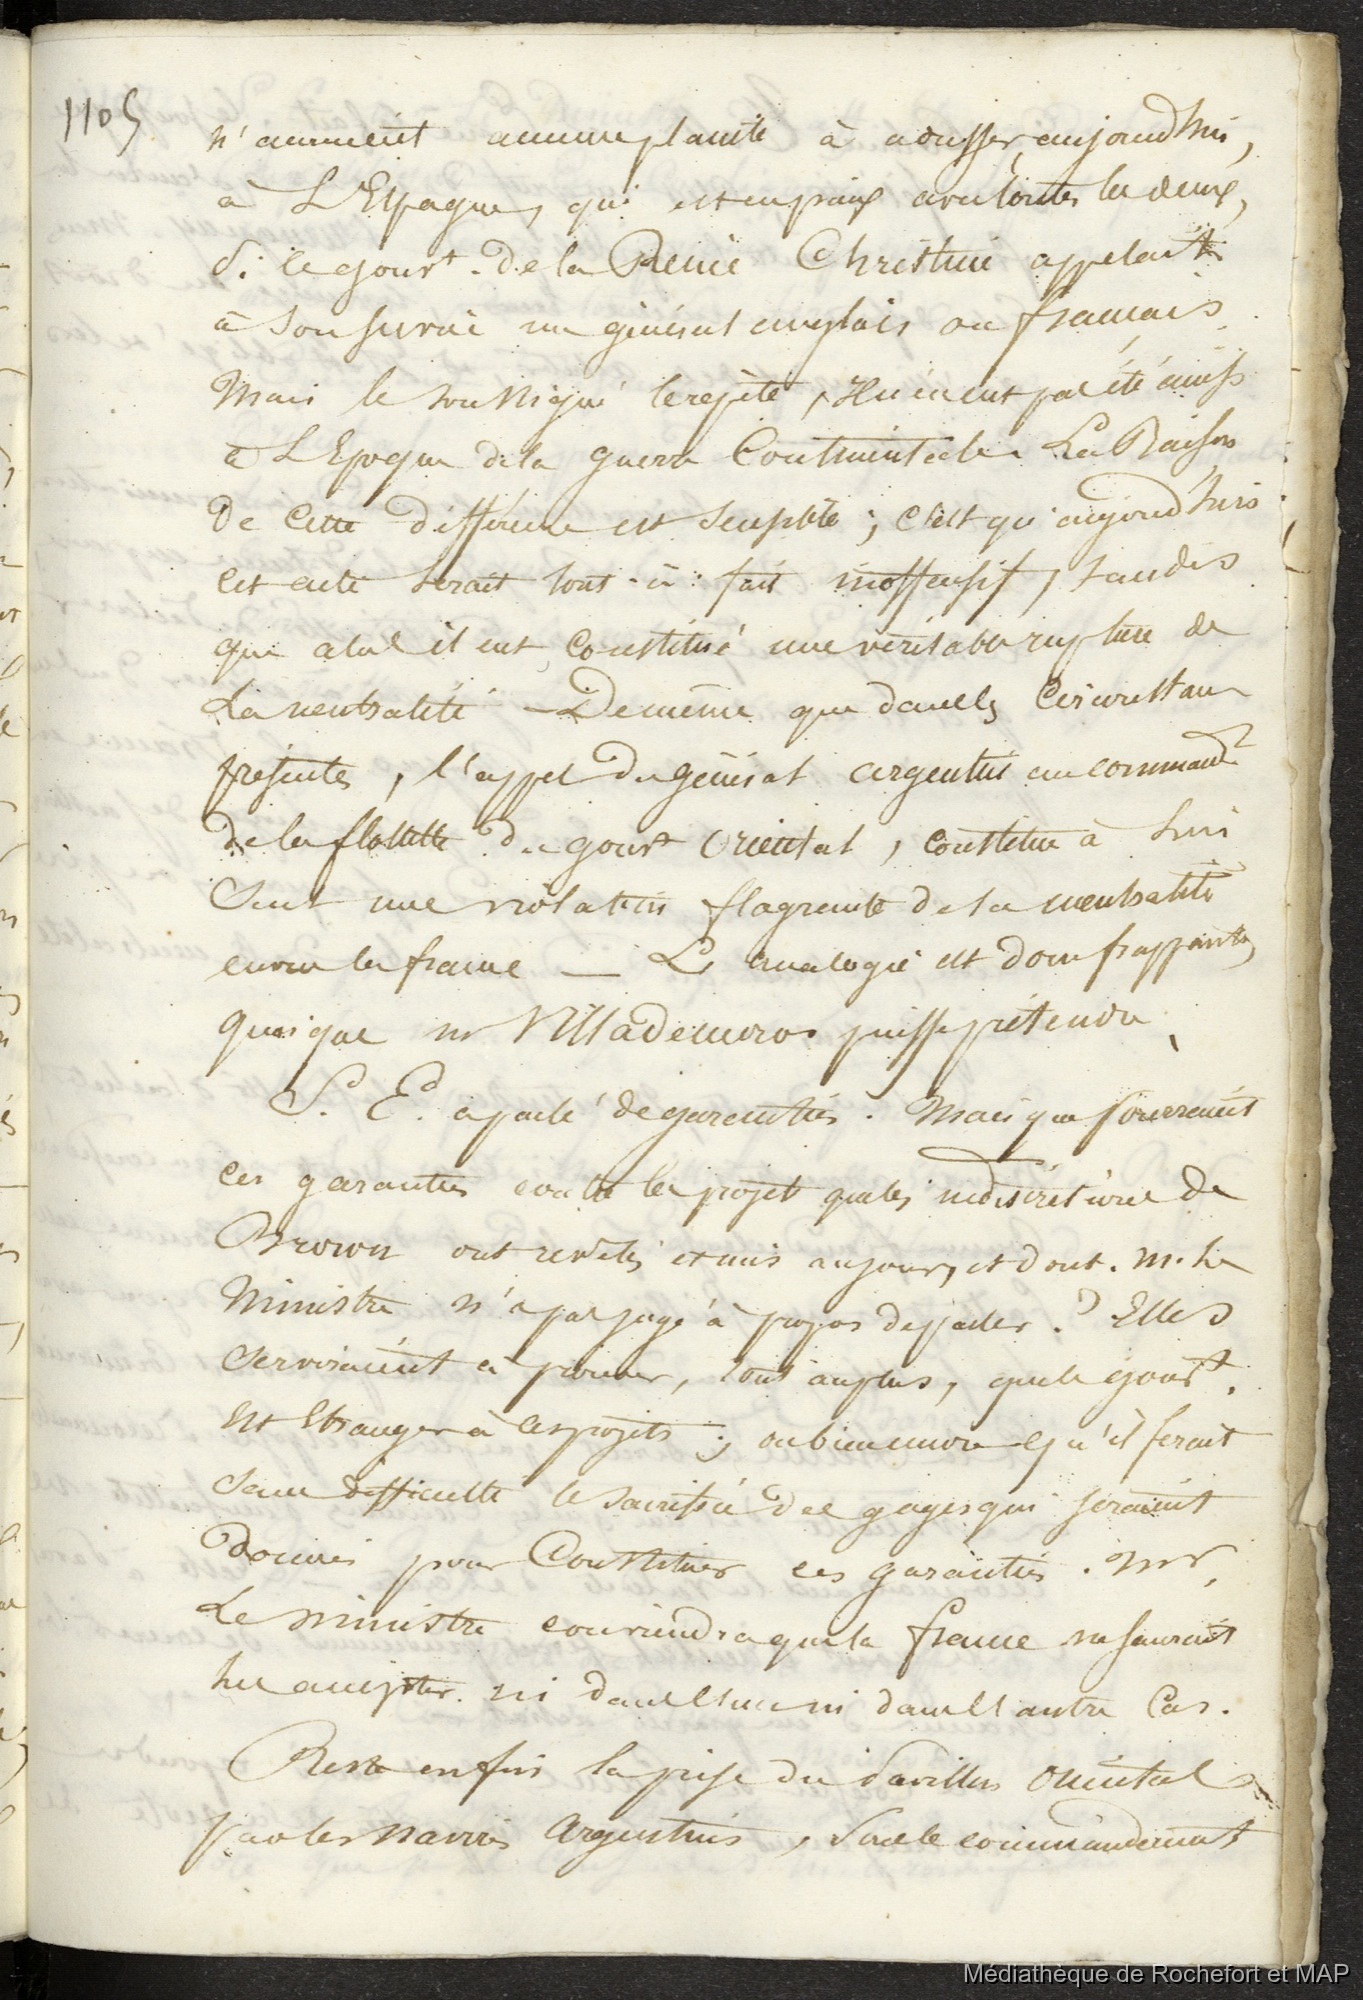 1105
n'auraient aucune plainte à adresser, aujourd'hui,
à L'Espagne, qui est en paix avec toutes les deux,
Si le gouvt. de la Reine Christine appelait
à son service un général anglais ou français.
Mais le soussigné le répète, Il n'en eut pas été ainsi
à L'Epoque de la guerre Continentale. La Raison
de cette différence est simple ; c'est qu'aujourd'hui
cet acte serait tout-à-fait inoffensif, tandis
que alors il eut constitué une véritable rupture de
La neutralité – De même que dans les Circonstances
présentes, l'appel du général argentin au commandt
de la flottille du gouvt Oriental, constitue à lui
Seul une violation flagrante de la neutralité
envers la france — L'analogie est donc frappante,
quoique mr Villademoros puisse prétendre.
S. E. a parlé de garanties. Mais que pourraient
ces garanties contre les projets que les indiscrétions de
Brown ont révélés et mis au jour, et dont M. Le
Ministre n'a pas jugé à propos de parler ? Elles
serviraient à prouver, tout au plus, que le gouvt.
est étranger à ces projets ; ou bien encore qu'il ferait
sans difficulté le sacrifice des gages qui seraient
donnés pour Constituer ces garanties. Mr.
Le Ministre conviendra que la france ne saurait
les accepter ni dans l'un ni dans l'autre Cas.
Reste enfin la prise du Pavillon Oriental
par les navires Argentins, sous le commandement
Médiathèque de Rochefort et MAP